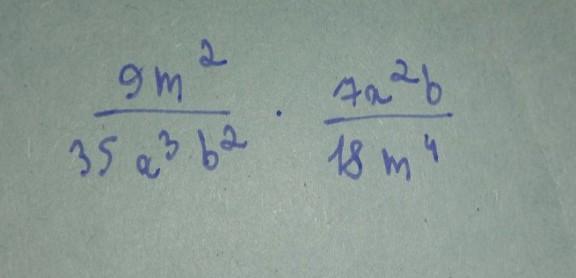 9m² / 35a³b² · 7a²b / 18m⁴